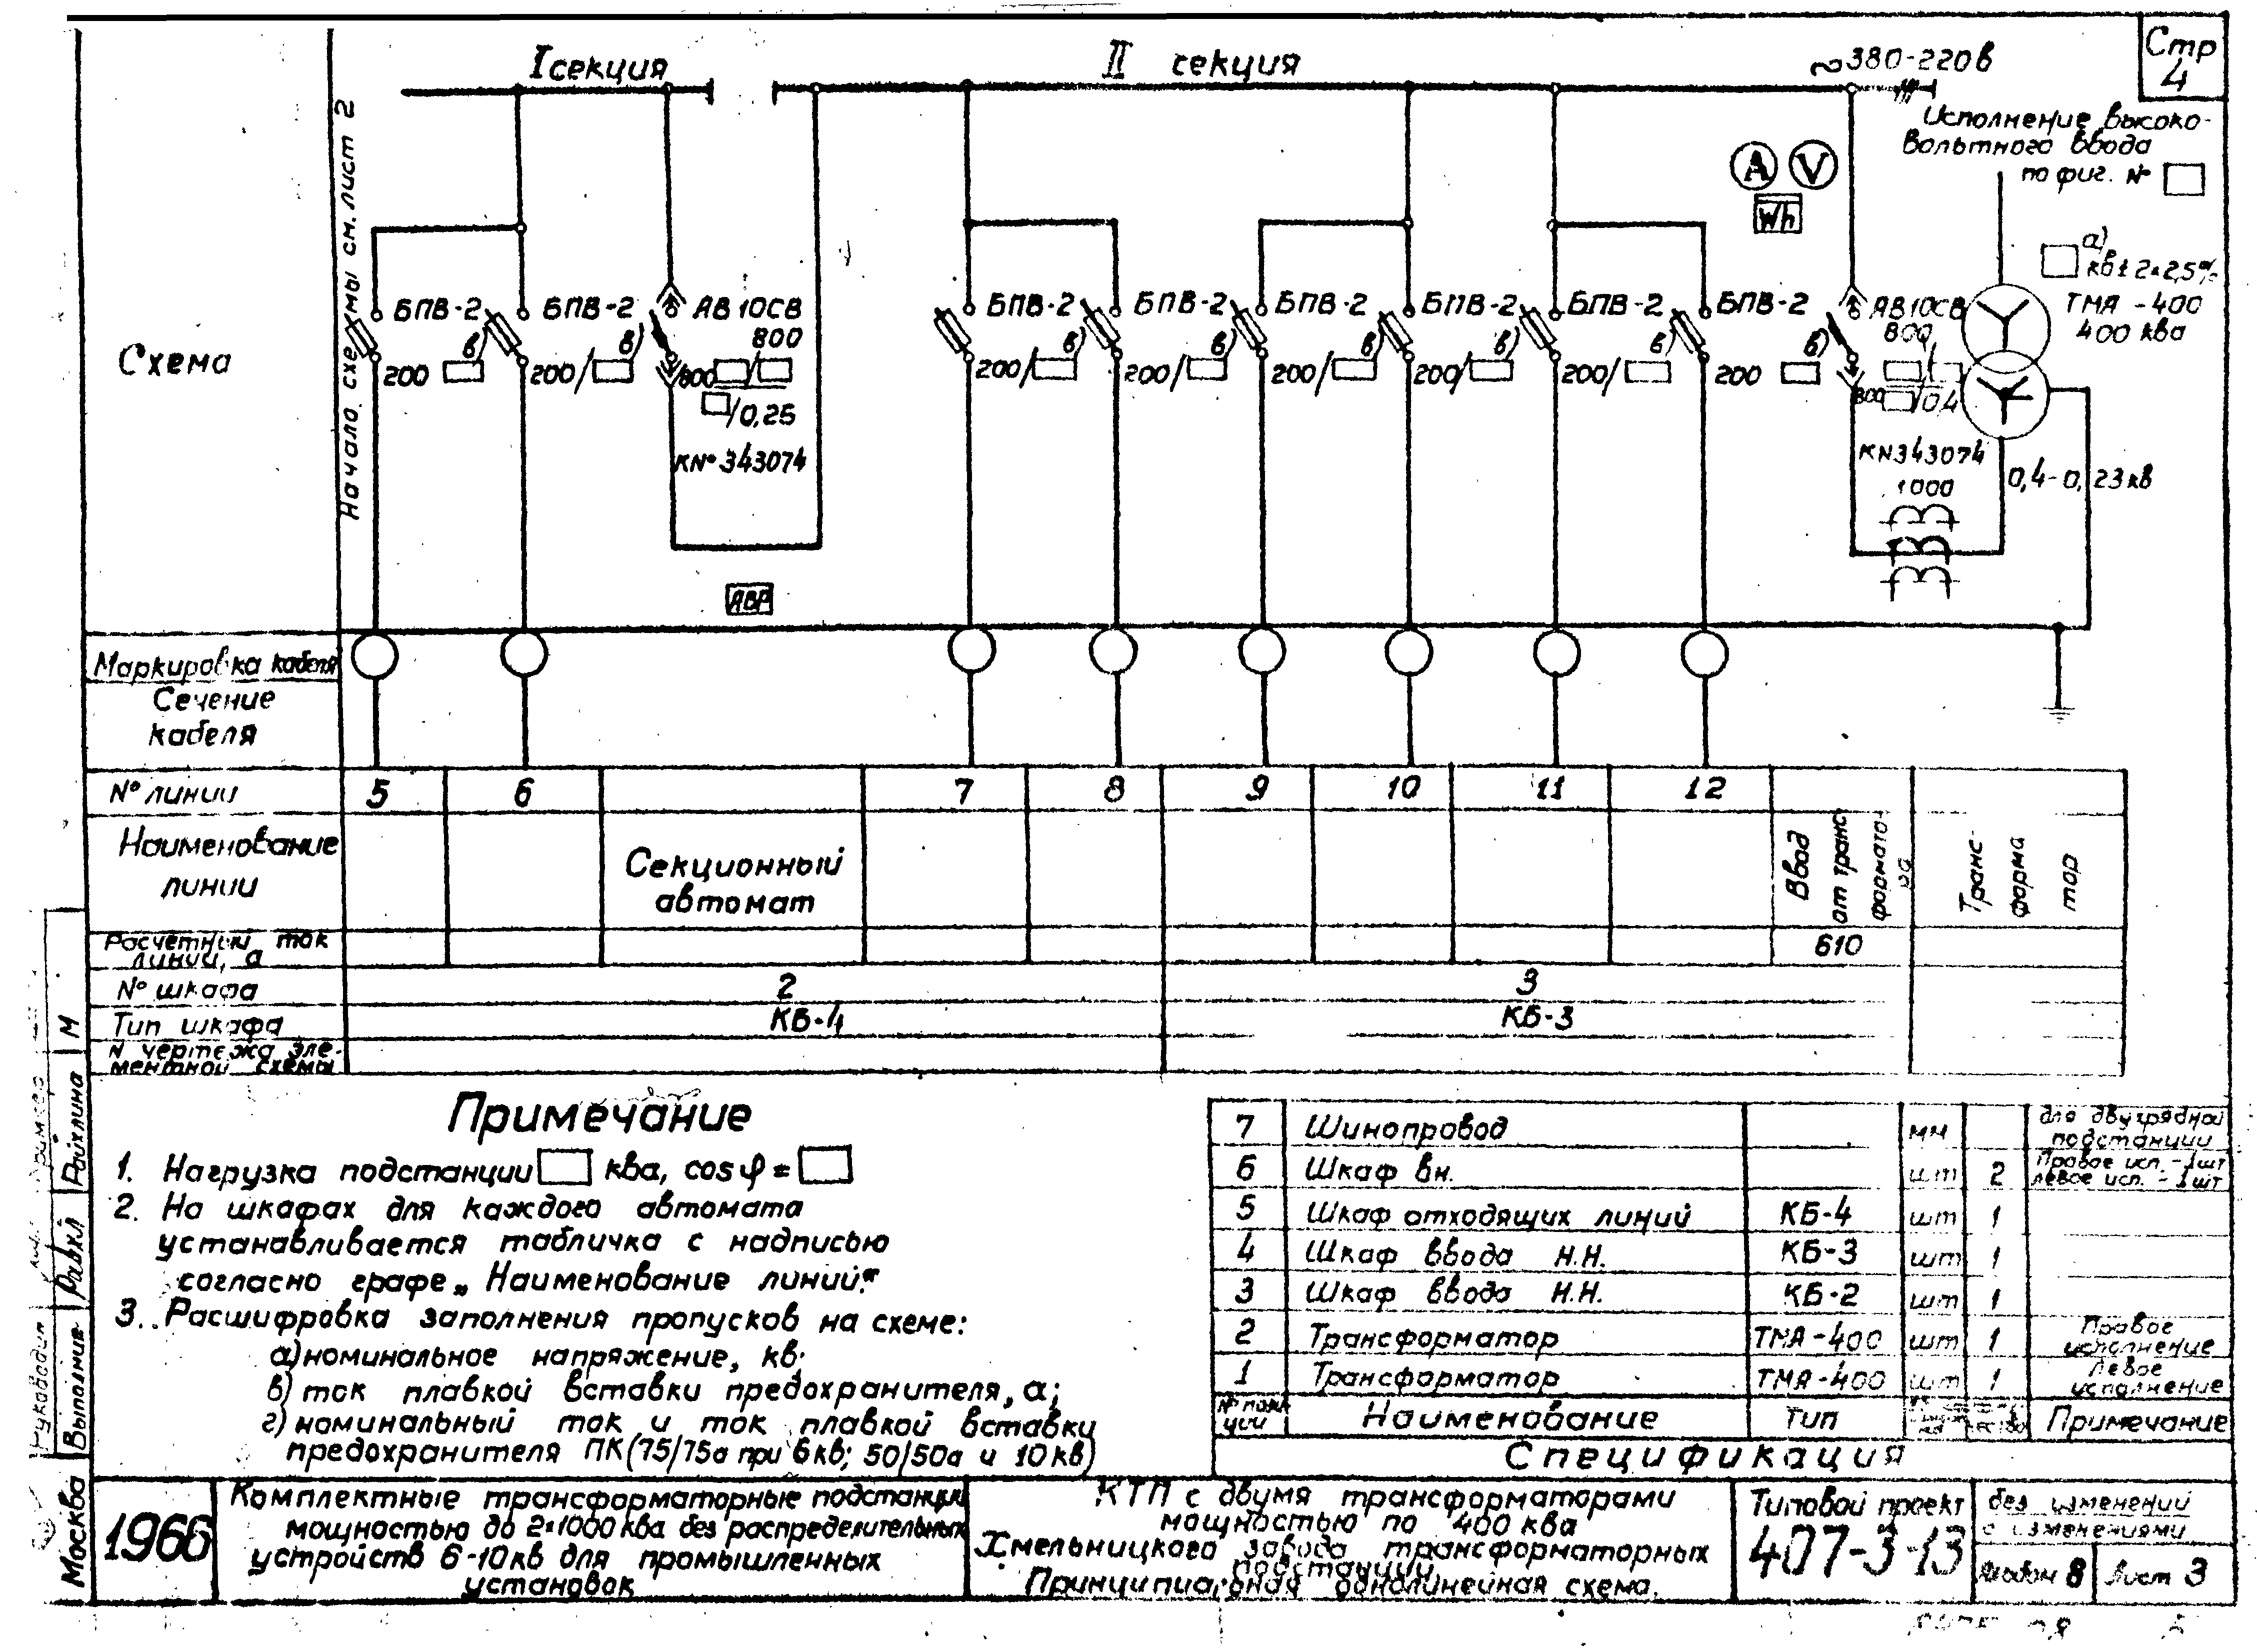 Стр
4
I секция
II секция
~380-220в
Исполнение высоко-
вольтного ввода
по фиг. №
Начало схемы см. лист 2
Схема
A
V
Wh
а)
кв ± 2×2,5%
ТМА -400
400 ква
БПВ-2
в)
200
БПВ-2
в)
200/
АВ10СВ
800
800 /
/0,25
КN°343074
АВР
БПВ-2
в)
200/
БПВ-2
в)
200/
БПВ-2
в)
200/
БПВ-2
в)
200/
БПВ-2
в)
200/
БПВ-2
в)
200
АВ10СВ
800
800 /0,4
КN343074
1000
0,4-0,23кв
Маркировка кабеля
Сечение
кабеля
N° линии
5 6 7 8 9 10 11 12
Наименование
линии
Секционный
автомат
Ввод
от транс
формато-
ра
Транс-
форма
тор
Расчетный ток
линии, а
610
N° шкафа
2
3
Тип шкафа
КБ-4
КБ-3
N чертежа эле-
ментной схемы
Примечание
1. Нагрузка подстанции ква, cos φ =
2. На шкафах для каждого автомата
устанавливается табличка с надписью
согласно графе „Наименование линий“.
3. Расшифровка заполнения пропусков на схеме:
а) номинальное напряжение, кв.
в) ток плавкой вставки предохранителя, а;
г) номинальный ток и ток плавкой вставки
предохранителя ПК (75/75а при 6кв; 50/50а и 10кв)
7 Шинопровод мм для двухрядной
подстанции
6 Шкаф вн. шт 2 Правое исп. - 1шт
левое исп. - 1шт
5 Шкаф отходящих линий КБ-4 шт 1
4 Шкаф ввода Н.Н. КБ-3 шт 1
3 Шкаф ввода Н.Н. КБ-2 шт 1
2 Трансформатор ТМА-400 шт 1 Правое
исполнение
1 Трансформатор ТМА-400 шт 1 Левое
исполнение
Наименование Тип Примечание
Спецификация
М
Райхлина
Равкл
Выполнив
Руководит
Москва
1966
Комплектные трансформаторные подстанции
мощностью до 2×1000 ква без распределительных
устройств 6-10кв для промышленных
установок
КТП с двумя трансформаторами
мощностью по 400 ква
Хмельницкого завода трансформаторных
подстанций.
Принципиальная однолинейная схема.
Типовой проект
407-3-13
без изменений
с изменениями
Альбом 8
Лист 3